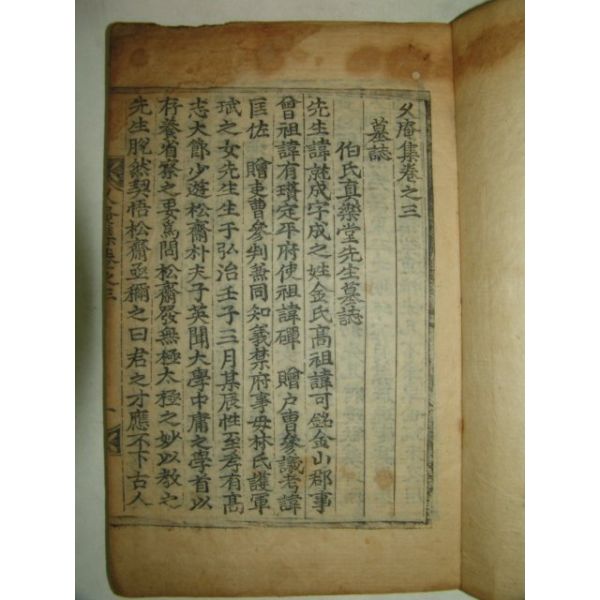 久庵集卷之三
墓誌
伯氏真樂堂先生墓誌
先生諱就成字成之姓金氏高祖諱可銘金山郡事
曾祖諱有瓚定平府使祖諱磾 贈戶曹參議考諱
匡佐 贈吏曹參判兼同知義禁府事母林氏護軍
珷之女先生生于弘治壬子三月某辰性至孝有高
志大節少遊松齋朴夫子英聞大學中庸之學首以
存養省察之要爲問松齋發無極太極之妙以教之
先生脫然契悟松齋亟稱之曰君之才應不下古人
久庵集卷之三
一